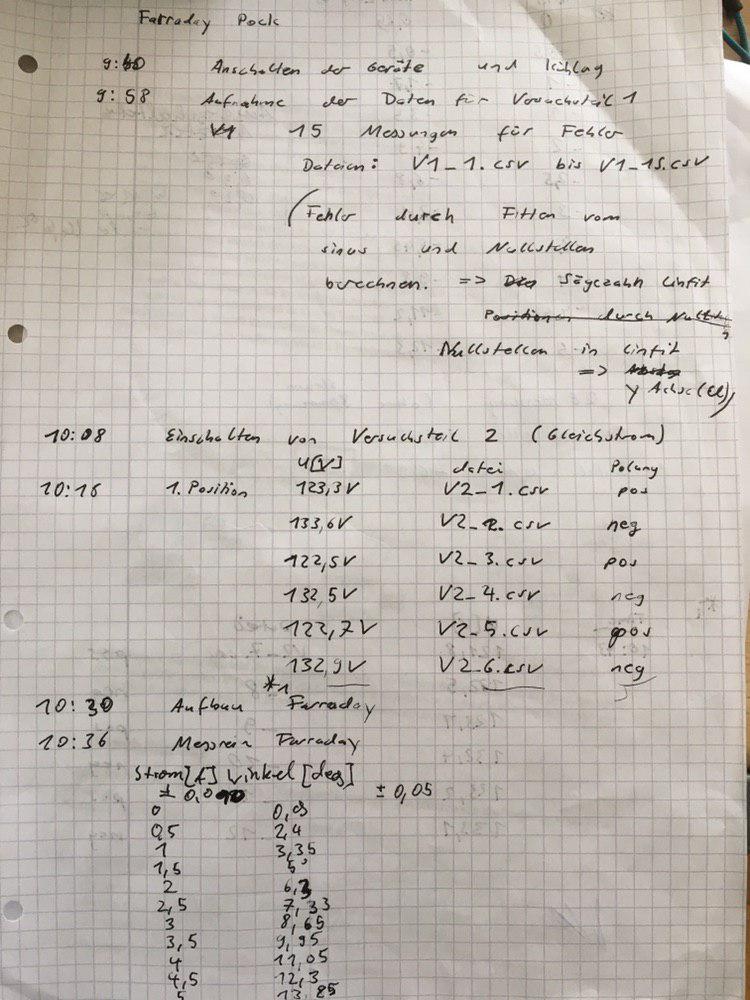 Farraday Pock
9:40 Anschalten der Geräte und Kühlag
9:58 Aufnahme der Daten für Versuchsteil 1
V1 15 Messungen für Fehler
Dateien: V1_1.csv bis V1_15.csv
(Fehler durch Fitten vom
sinus und Nullstellen
berechnen. => Die Sägezahn linfit
Positionen durch
Nullstellen in linfit
=>
y Achse (U))
10:08 Einschalten von Versuchsteil 2 (Gleichstrom)
U[V] datei Polung
10:16 1. Position 123,3V V2_1.csv pos
133,6V V2_2.csv neg
122,5V V2_3.csv pos
132,5V V2_4.csv neg
122,7V V2_5.csv pos
132,9V V2_6.csv neg
*1
10:30 Aufbau Farraday
10:36 Messrein Farraday
Strom[A] Winkel [deg]
± ± 0,05
0 0,03
0,5 2,4
1 3,35
1,5 5
2 6,3
2,5 7,33
3 8,65
3,5 9,95
4 11,05
4,5 12,3
5 13,85